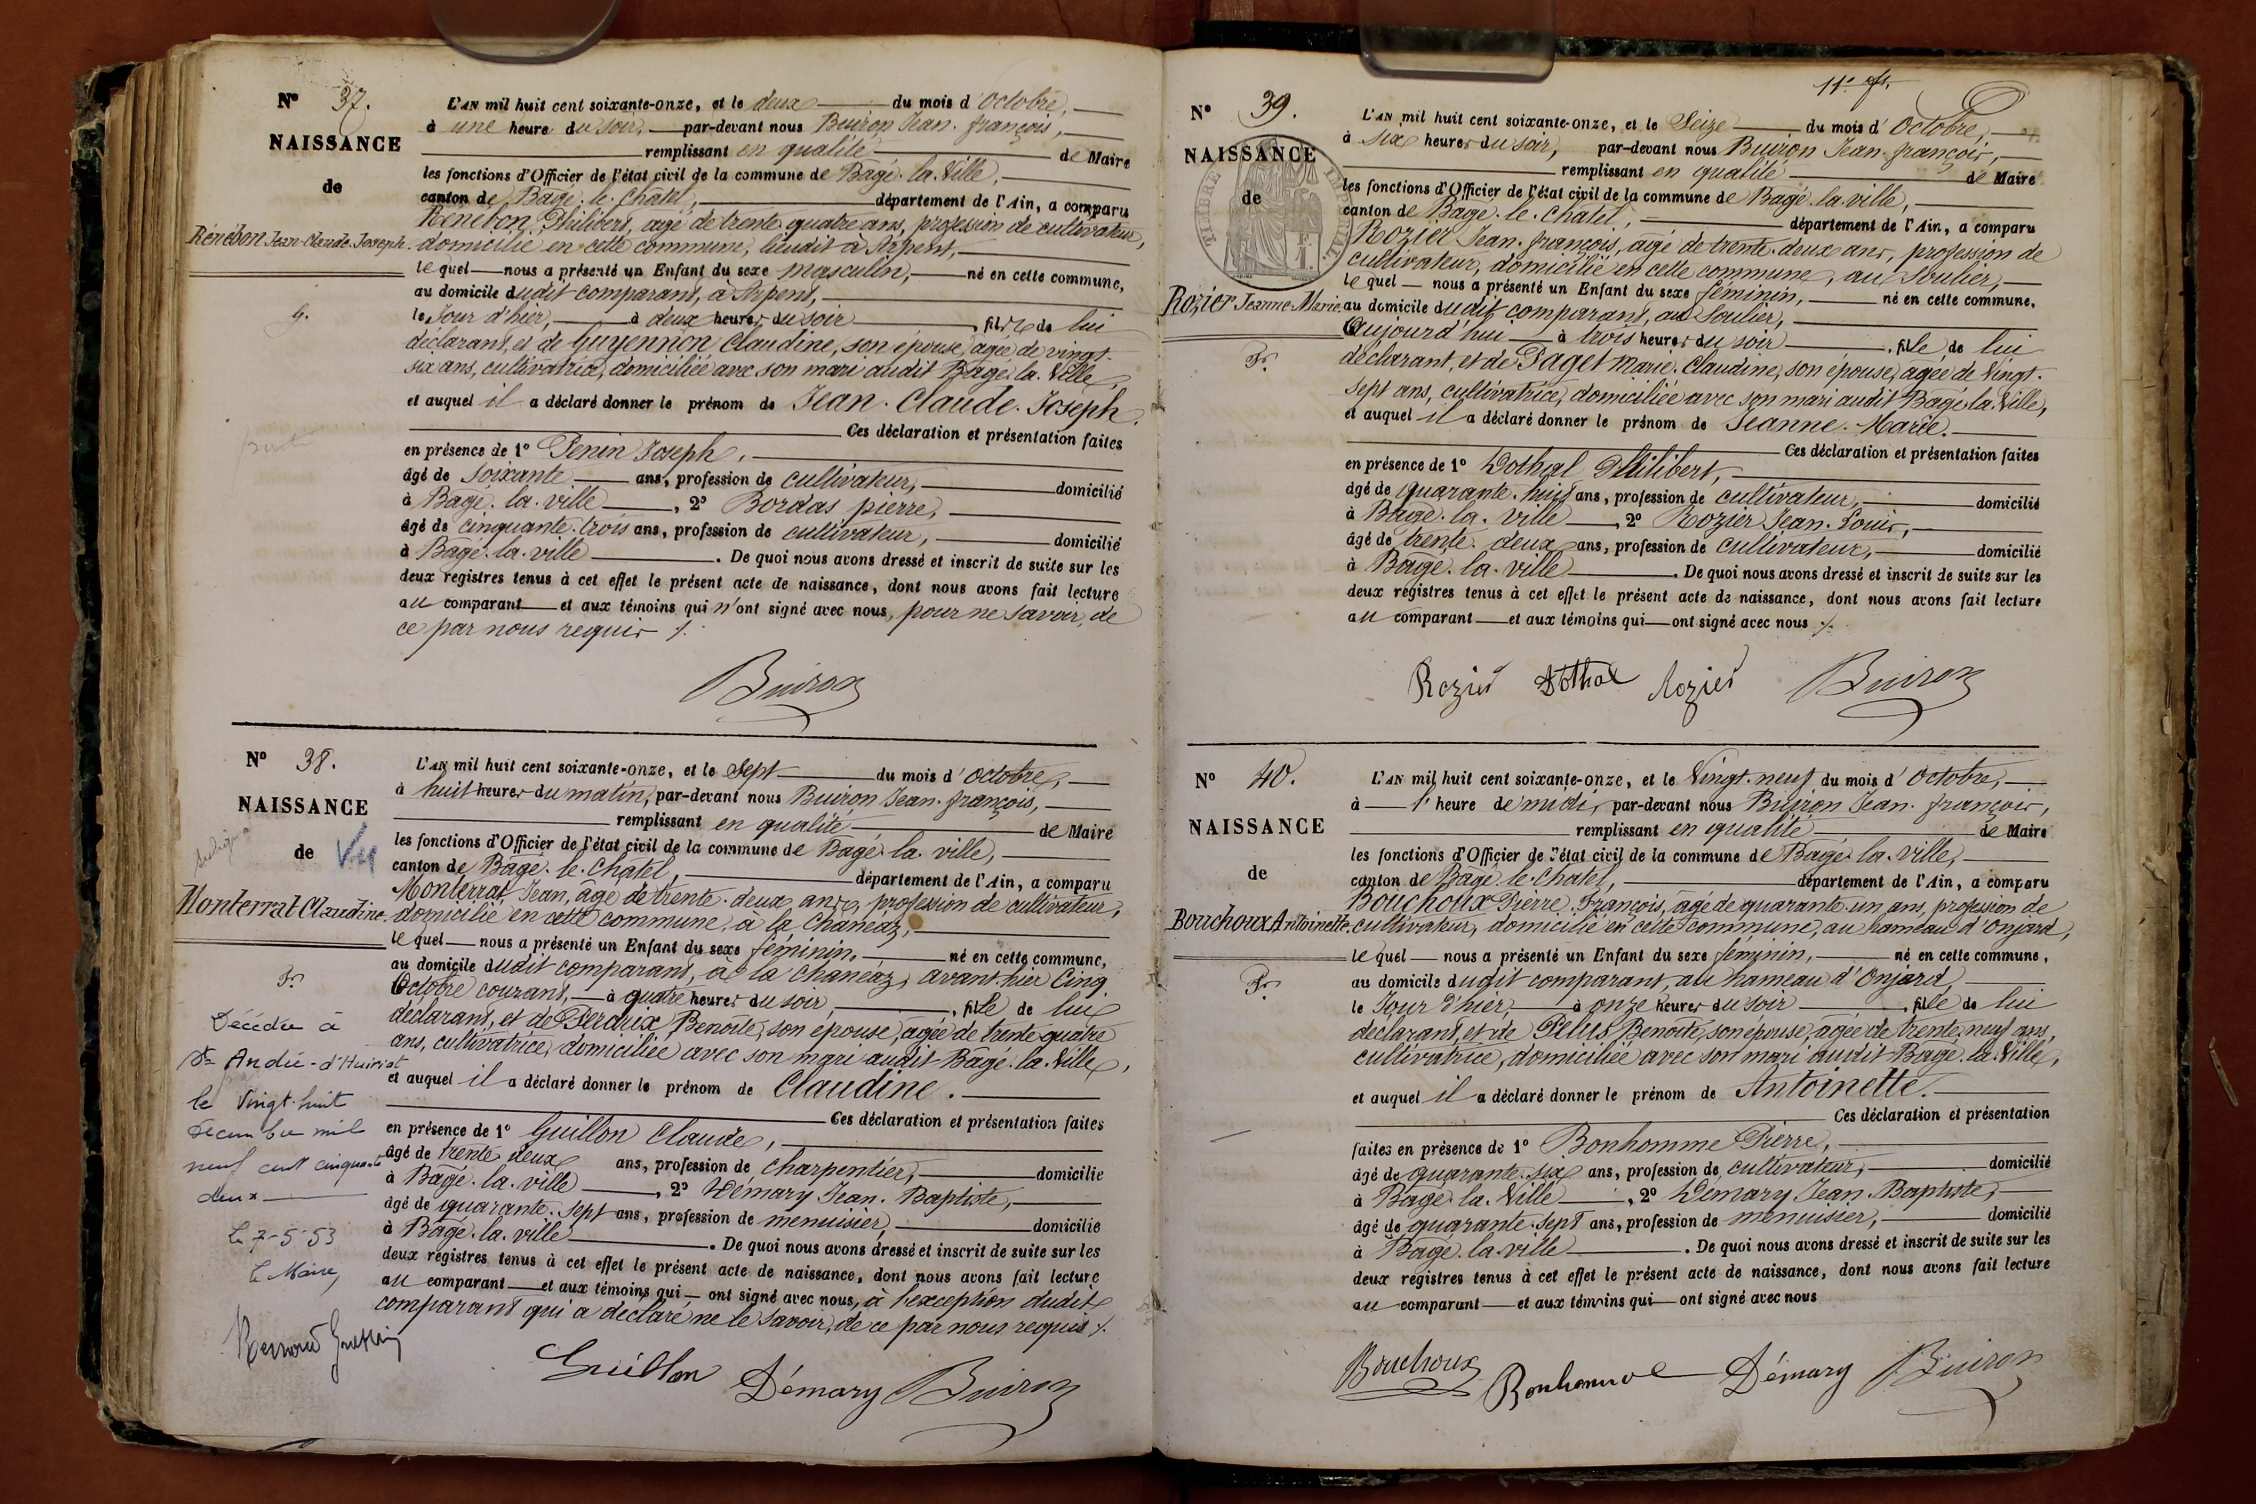 N° 37.
NAISSANCE
de
Rénébon Jean-Claude-Joseph.
G.
L'AN mil huit cent soixante-onze, et le deux du mois d'Octobre,
à une heure du soir, par-devant nous Buiron Jean-françois,
remplissant en qualité de Maire
les fonctions d'Officier de l'état civil de la commune de Bagé-la-Ville,
canton de Bagé-le-Châtel, département de l'Ain, a comparu
Rénébon Philibert, âgé de trente-quatre ans, profession de cultivateur,
domicilié en cette commune, lieudit à Arpent,
lequel nous a présenté un Enfant du sexe masculin, né en cette commune,
au domicile dudit comparant, à Arpent,
le Jour d'hier, à deux heures du soir, fils de lui
déclarant, et de Guyennon Claudine, son épouse, âgée de vingt-
six ans, cultivatrice, domiciliée avec son mari audit Bagé-la-Ville,
et auquel il a déclaré donner le prénom de Jean-Claude-Joseph.
Ces déclaration et présentation faites
en présence de 1° Penin Joseph,
âgé de soixante ans, profession de cultivateur, domicilié
à Bagé-la-ville, 2° Bordas pierre,
âgé de cinquante-trois ans, profession de cultivateur, domicilié
à Bagé-la-ville. De quoi nous avons dressé et inscrit de suite sur les
deux registres tenus à cet effet le présent acte de naissance, dont nous avons fait lecture
au comparant et aux témoins qui n'ont signé avec nous, pour ne savoir, de
ce par nous requis ./.
Buiron
N° 38.
NAISSANCE
de Vu
Monterrat Claudine.
Fr.
Décédée à
St André-d'Huiriat
le Vingt-huit
décembre mil
neuf cent cinquante
deux
Le 7-5-53
Le Maire,
L'AN mil huit cent soixante-onze, et le Sept du mois d'Octobre,
à huit heures du matin, par-devant nous Buiron Jean-françois,
remplissant en qualité de Maire
les fonctions d'Officier de l'état civil de la commune de Bagé-la-ville,
canton de Bagé-le-Châtel, département de l'Ain, a comparu
Monterrat Jean, âgé de trente-deux ans, profession de cultivateur,
domicilié en cette commune, à la Chanéaz,
lequel nous a présenté un Enfant du sexe féminin, né en cette commune,
au domicile dudit comparant, à la Chanéaz, avant-hier Cinq
Octobre courant, à quatre heures du soir, fille de lui
déclarant, et de Perdrix Benoîte, son épouse, âgée de trente-quatre
ans, cultivatrice, domiciliée avec son mari audit Bagé-la-Ville,
et auquel il a déclaré donner le prénom de Claudine.
Ces déclaration et présentation faites
en présence de 1° Guillon Claude,
âgé de trente-deux ans, profession de charpentier, domicilié
à Bagé-la-ville, 2° Démary Jean-Baptiste,
âgé de quarante-sept ans, profession de menuisier, domicilié
à Bagé-la-ville. De quoi nous avons dressé et inscrit de suite sur les
deux registres tenus à cet effet le présent acte de naissance, dont nous avons fait lecture
au comparant et aux témoins qui ont signé avec nous, à l'exception dudit
comparant qui a déclaré ne le savoir, de ce par nous requis ./.
Guillon Démary Buiron
11e ft.
N° 39.
NAISSANCE
de
Rozier Jeanne-Marie.
Fr.
L'AN mil huit cent soixante-onze, et le Seize du mois d'Octobre,
à six heures du soir, par-devant nous Buiron Jean-françois,
remplissant en qualité de Maire
les fonctions d'Officier de l'état civil de la commune de Bagé-la-ville,
canton de Bagé-le-Châtel, département de l'Ain, a comparu
Rozier Jean-françois, âgé de trente-deux ans, profession de
cultivateur, domicilié en cette commune, au Soulier,
lequel nous a présenté un Enfant du sexe féminin, né en cette commune,
au domicile dudit comparant, au Soulier,
Aujourd'hui à trois heures du soir, fille de lui
déclarant, et de Paget Marie-Claudine, son épouse, âgée de Vingt-
sept ans, cultivatrice, domiciliée avec son mari audit Bagé-la-Ville,
et auquel il a déclaré donner le prénom de Jeanne-Marie.
Ces déclaration et présentation faites
en présence de 1° Dothal Philibert,
âgé de quarante-huit ans, profession de cultivateur, domicilié
à Bagé-la-ville, 2° Rozier Jean-Louis,
âgé de trente-deux ans, profession de cultivateur, domicilié
à Bagé-la-ville. De quoi nous avons dressé et inscrit de suite sur les
deux registres tenus à cet effet le présent acte de naissance, dont nous avons fait lecture
au comparant et aux témoins qui ont signé avec nous ./.
Rozier Dothal Rozier Buiron
N° 40.
NAISSANCE
de
Bouchoux Antoinette.
Fr.
L'AN mil huit cent soixante-onze, et le Vingt-neuf du mois d'Octobre,
à l'heure de midi, par-devant nous Buiron Jean-françois,
remplissant en qualité de Maire
les fonctions d'Officier de l'état civil de la commune de Bagé-la-ville,
canton de Bagé-le-Châtel, département de l'Ain, a comparu
Bouchoux Pierre-François, âgé de quarante-un ans, profession de
cultivateur, domicilié en cette commune, au hameau d'Onjard,
lequel nous a présenté un Enfant du sexe féminin, né en cette commune,
au domicile dudit comparant, au hameau d'Onjard,
le Jour d'hier, à onze heures du soir, fille de lui
déclarant, et de Pelus Benoîte, son épouse, âgée de trente-neuf ans,
cultivatrice, domiciliée avec son mari audit Bagé-la-Ville,
et auquel il a déclaré donner le prénom de Antoinette.
Ces déclaration et présentation
faites en présence de 1° Bonhomme Pierre,
âgé de quarante-six ans, profession de cultivateur, domicilié
à Bagé-la-Ville, 2° Démary Jean-Baptiste,
âgé de quarante-sept ans, profession de menuisier, domicilié
à Bagé-la-ville. De quoi nous avons dressé et inscrit de suite sur les
deux registres tenus à cet effet le présent acte de naissance, dont nous avons fait lecture
au comparant et aux témoins qui ont signé avec nous
Bouchoux Bonhomme Démary Buiron